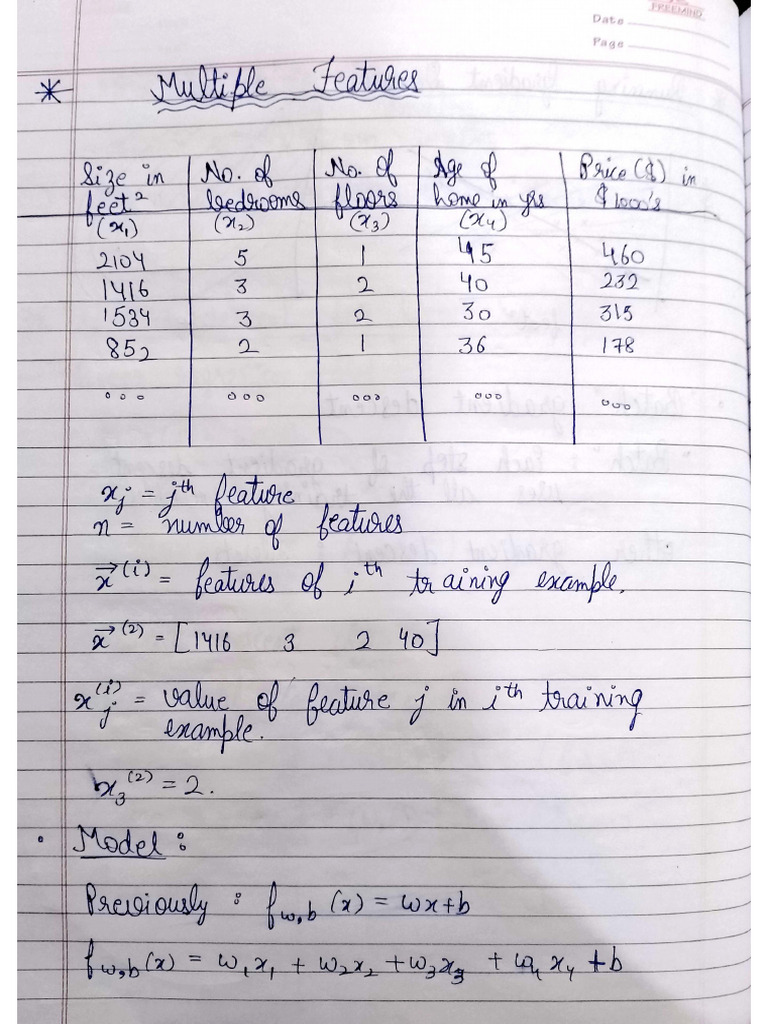 FREEMIND
Date
Page
* Multiple Features
Size in feet² (x₁) | No. of bedrooms (x₂) | No. of floors (x₃) | Age of home in yrs (x₄) | Price ($) in $1000's
2104 | 5 | 1 | 45 | 460
1416 | 3 | 2 | 40 | 232
1534 | 3 | 2 | 30 | 315
852 | 2 | 1 | 36 | 178
ooo | ooo | ooo | ooo | ooo
xⱼ = jth feature
n = number of features
x⃗⁽ⁱ⁾ = features of ith training example.
x⃗⁽²⁾ = [1416 3 2 40]
xⱼ⁽ⁱ⁾ = value of feature j in ith training
example.
x₃⁽²⁾ = 2.
• Model :
Previously : f_w,b (x) = wx+b
f_w,b (x) = w₁x₁ + w₂x₂ + w₃x₃ + w₄x₄ + b